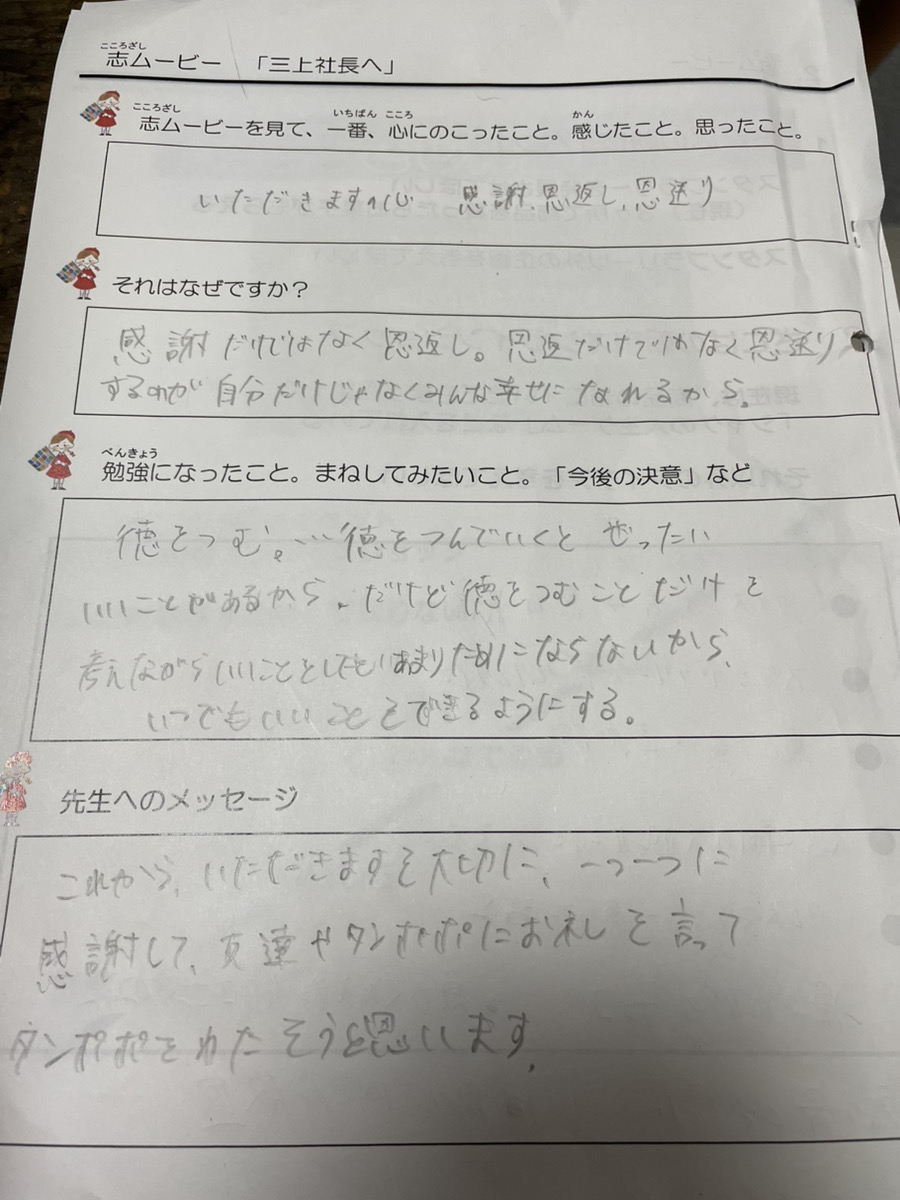 こころざし
志ムービー 「三上社長へ」
こころざし いちばん こころ かん
志ムービーを見て、一番、心にのこったこと。感じたこと。思ったこと。
いただきますの心 感謝、恩返し、恩送り
それはなぜですか?
感謝だけではなく恩返し。恩返だけではなく恩送り
するのが自分だけじゃなくみんな幸せになれるから。
べんきょう
勉強になったこと。まねしてみたいこと。「今後の決意」など
徳をつむ。…徳をつんでいくと ぜったい
いいことがあるから。だけど徳をつむことだけを
考えながらいいことをしてもあまりためにならないから、
いつでもいいことをできるようにする。
先生へのメッセージ
これから、いただきますを大切に、一つ一つに
感謝して、友達やタンポポにお礼を言って
タンポポをわたそうと思います。